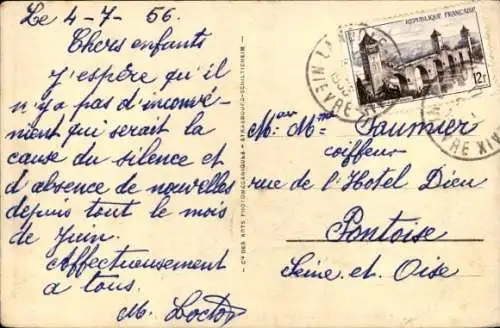 Le 4-7-56.
Chers enfants
J'espère qu'il
n'y a pas d'inconvé-
nient qui serait la
cause du silence et
d'absence de nouvelles
depuis tout le mois
de Juin.
Affectueusement
à tous.
M.
Cie DES ARTS PHOTOMÉCANIQUES - STRASBOURG-SCHILTIGHEIM
REPUBLIQUE FRANÇAISE
12F
Mr Mme Saumier
coiffeur
rue de l'Hotel Dieu
Pontoise
Seine et Oise